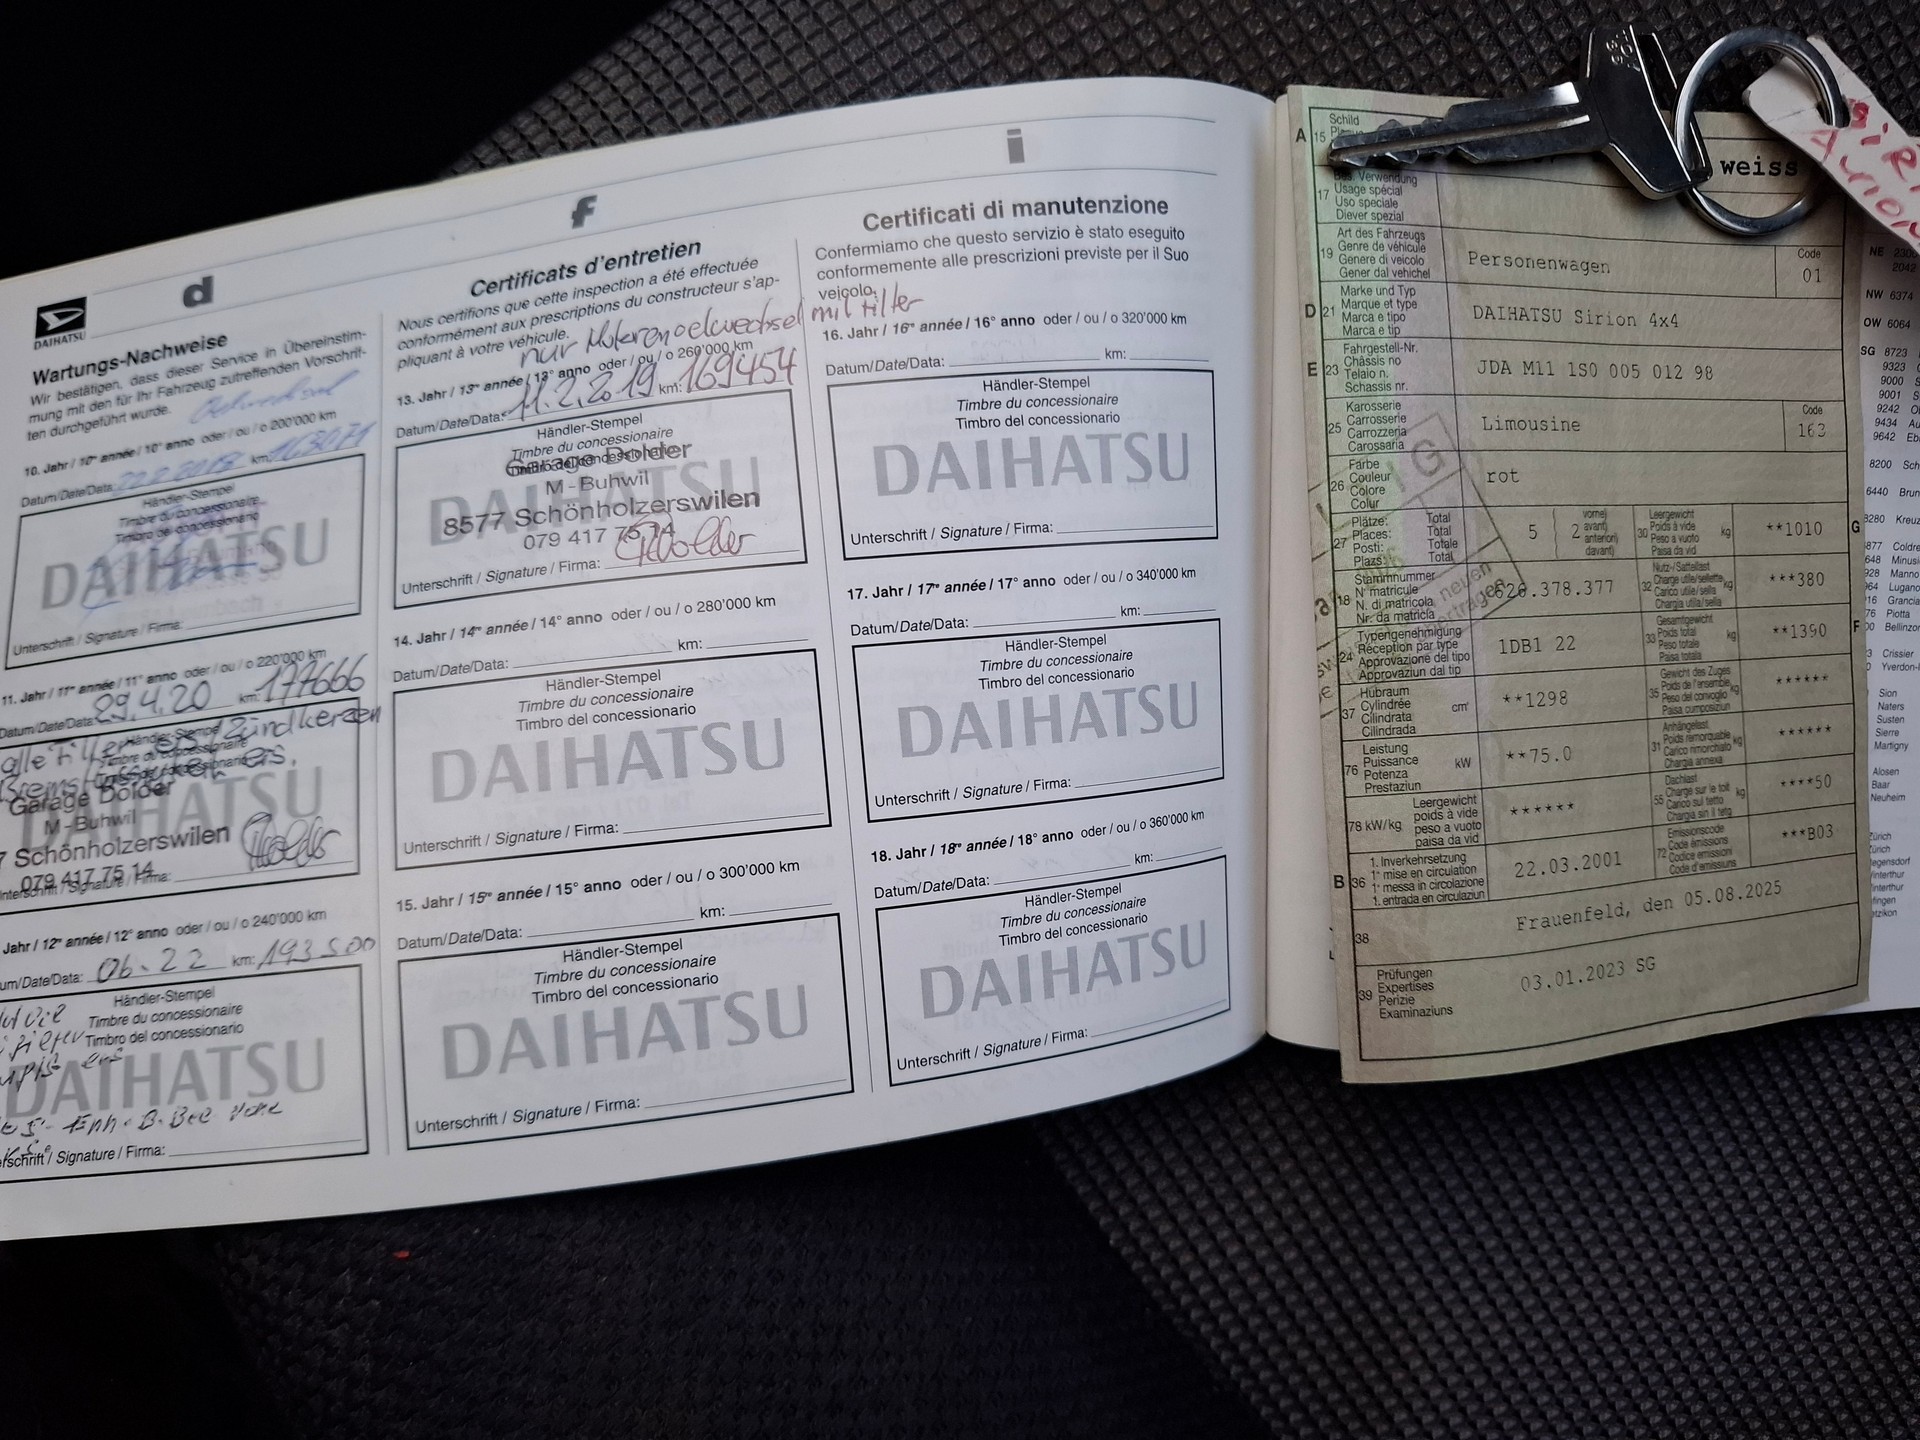 d
DAIHATSU
Wartungs-Nachweise
Wir bestätigen, dass dieser Service in Übereinstim-
mung mit den für Ihr Fahrzeug zutreffenden Vorschrif-
ten durchgeführt wurde.
10. Jahr / 10e année / 10° anno oder / ou / o 200'000 km
Datum/Date/Data: km: 163071
Händler-Stempel
Timbre du concessionnaire
Timbro del concessionario
DAIHATSU
Unterschrift / Signature / Firma:
11. Jahr / 11e année / 11° anno oder / ou / o 220'000 km
Datum/Date/Data: 29.4.20 km: 177666
alle Filter ers. Zündkerzen
ers.
Garage Dolder
M - Buhwil
7 Schönholzerswilen
079 417 75 14
DAIHATSU
Jahr / 12e année / 12° anno oder / ou / o 240'000 km
um/Date/Data: 06.22 km: 193500
Händler-Stempel
Timbre du concessionnaire
Timbro del concessionario
DAIHATSU
rschrift / Signature / Firma:
f
Certificats d'entretien
Nous certifions que cette inspection a été effectuée
conformément aux prescriptions du constructeur s'ap-
pliquant à votre véhicule.
nur Motorenoelwechsel mit Filter
13. Jahr / 13e année / 13° anno oder / ou / o 260'000 km
Datum/Date/Data: 11.2.2019 km: 169454
Händler-Stempel
Timbre du concessionnaire
Timbro del concessionario
Garage Dolder
M - Buhwil
8577 Schönholzerswilen
079 417 75 14
DAIHATSU
Unterschrift / Signature / Firma:
14. Jahr / 14e année / 14° anno oder / ou / o 280'000 km
Datum/Date/Data: km:
Händler-Stempel
Timbre du concessionnaire
Timbro del concessionario
DAIHATSU
Unterschrift / Signature / Firma:
15. Jahr / 15e année / 15° anno oder / ou / o 300'000 km
Datum/Date/Data: km:
Händler-Stempel
Timbre du concessionnaire
Timbro del concessionario
DAIHATSU
Unterschrift / Signature / Firma:
i
Certificati di manutenzione
Confermiamo che questo servizio è stato eseguito
conformemente alle prescrizioni previste per il Suo
veicolo.
16. Jahr / 16e année / 16° anno oder / ou / o 320'000 km
Datum/Date/Data: km:
Händler-Stempel
Timbre du concessionnaire
Timbro del concessionario
DAIHATSU
Unterschrift / Signature / Firma:
17. Jahr / 17e année / 17° anno oder / ou / o 340'000 km
Datum/Date/Data: km:
Händler-Stempel
Timbre du concessionnaire
Timbro del concessionario
DAIHATSU
Unterschrift / Signature / Firma:
18. Jahr / 18e année / 18° anno oder / ou / o 360'000 km
Datum/Date/Data: km:
Händler-Stempel
Timbre du concessionnaire
Timbro del concessionario
DAIHATSU
Unterschrift / Signature / Firma:
A 15 Schild
weiss
17 Bes. Verwendung
Usage spécial
Uso speciale
Diever spezial
19 Art des Fahrzeugs
Genre de véhicule
Genere di veicolo
Gener dal vehichel
Personenwagen
Code
01
D 21 Marke und Typ
Marque et type
Marca e tipo
Marca e tip
DAIHATSU Sirion 4x4
E 23 Fahrgestell-Nr.
Châssis no
Telaio n.
Schassis nr.
JDA M11 1S0 005 012 98
25 Karosserie
Carrosserie
Carrozzeria
Carossaria
Limousine
Code
163
26 Farbe
Couleur
Colore
Colur
rot
27 Plätze: Total
Places: Total
Posti: Totale
Plazs: Total
5
2 vorne
avant
anteriori
davant
30 Leergewicht
Poids à vide
Peso a vuoto
Paisa da vid
kg
**1010
G
18 Stammnummer
N° matricule
N. di matricola
Nr. da matricla
626.378.377
32 Nutz-/Sattellast
Charge utile/sellette
Carico utile/sella
Chargia utila/sella
kg
***380
24 Typengenehmigung
Réception par type
Approvazione del tipo
Approvaziun dal tip
1DB1 22
33 Gesamtgewicht
Poids total
Peso totale
Paisa totala
kg
**1390
F
37 Hubraum
Cylindrée
Cilindrata
Cilindrada
cm³
**1298
35 Gewicht des Zuges
Poids de l'ensemble
Peso del convoglio
Paisa cumposiziun
kg
******
76 Leistung
Puissance
Potenza
Prestaziun
kW
**75.0
31 Anhängelast
Poids remorquable
Carico rimorchiato
Chargia annexa
kg
******
78 kW/kg Leergewicht
poids à vide
peso a vuoto
paisa da vid
******
55 Dachlast
Charge sur le toit
Carico sul tetto
Chargia sin il tetg
kg
****50
B 36 1. Inverkehrsetzung
1re mise en circulation
1a messa in circolazione
1. entrada en circulaziun
22.03.2001
72 Emissionscode
Code émissions
Codice emissioni
Code d'emissiuns
***B03
38
Frauenfeld, den 05.08.2025
39 Prüfungen
Expertises
Perizie
Examinaziuns
03.01.2023 SG
NE 2300
2042
NW 6374
OW 6064
SG 8723
9323
9000
9001
9242
9434
9642
8200
6440
8280
Sion
Naters
Susten
Sierre
Martigny
Alosen
Baar
Neuheim